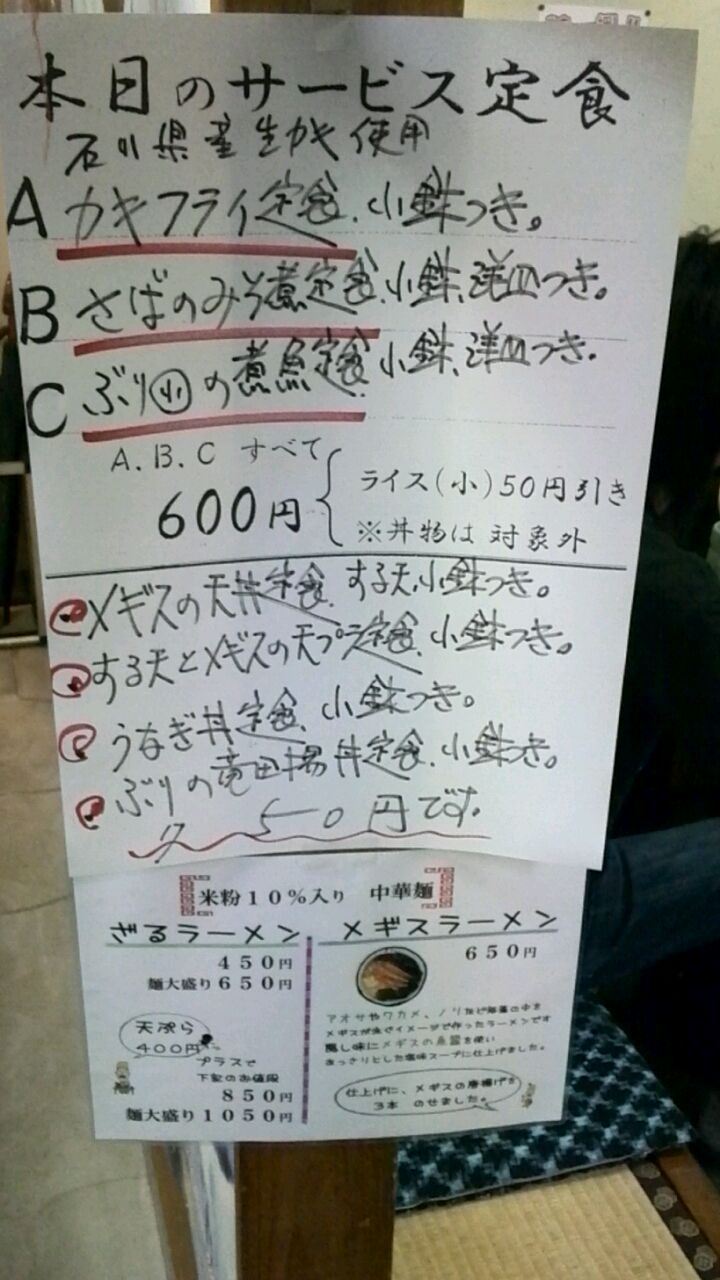 本日のサービス定食
石川県産生カキ使用
A カキフライ定食.小鉢つき。
B さばのみそ煮定食.小鉢、洋皿つき。
C ぶり小の煮魚定食.小鉢、洋皿つき.
A.B.C すべて
600円
ライス(小)50円引き
※丼物は対象外
メギスの天丼定食.する天、小鉢つき。
する天とメギスの天プラ定食.小鉢つき。
うなぎ丼定食.小鉢つき。
ぶりの竜田揚丼定食.小鉢つき。
50円です.
米粉10%入り 中華麺
ざるラーメン
450円
麺大盛り650円
天ぷら
400円
プラスで
下記のお値段
850円
麺大盛り1050円
メギスラーメン
650円
アオサやワカメ、ノリなど海藻の中を
メギスが泳ぐイメージで作ったラーメンです
隠し味にメギスの魚醤を使い
あっさりとした塩味スープに仕上げました。
仕上げに、メギスの唐揚げを
3本 のせました。